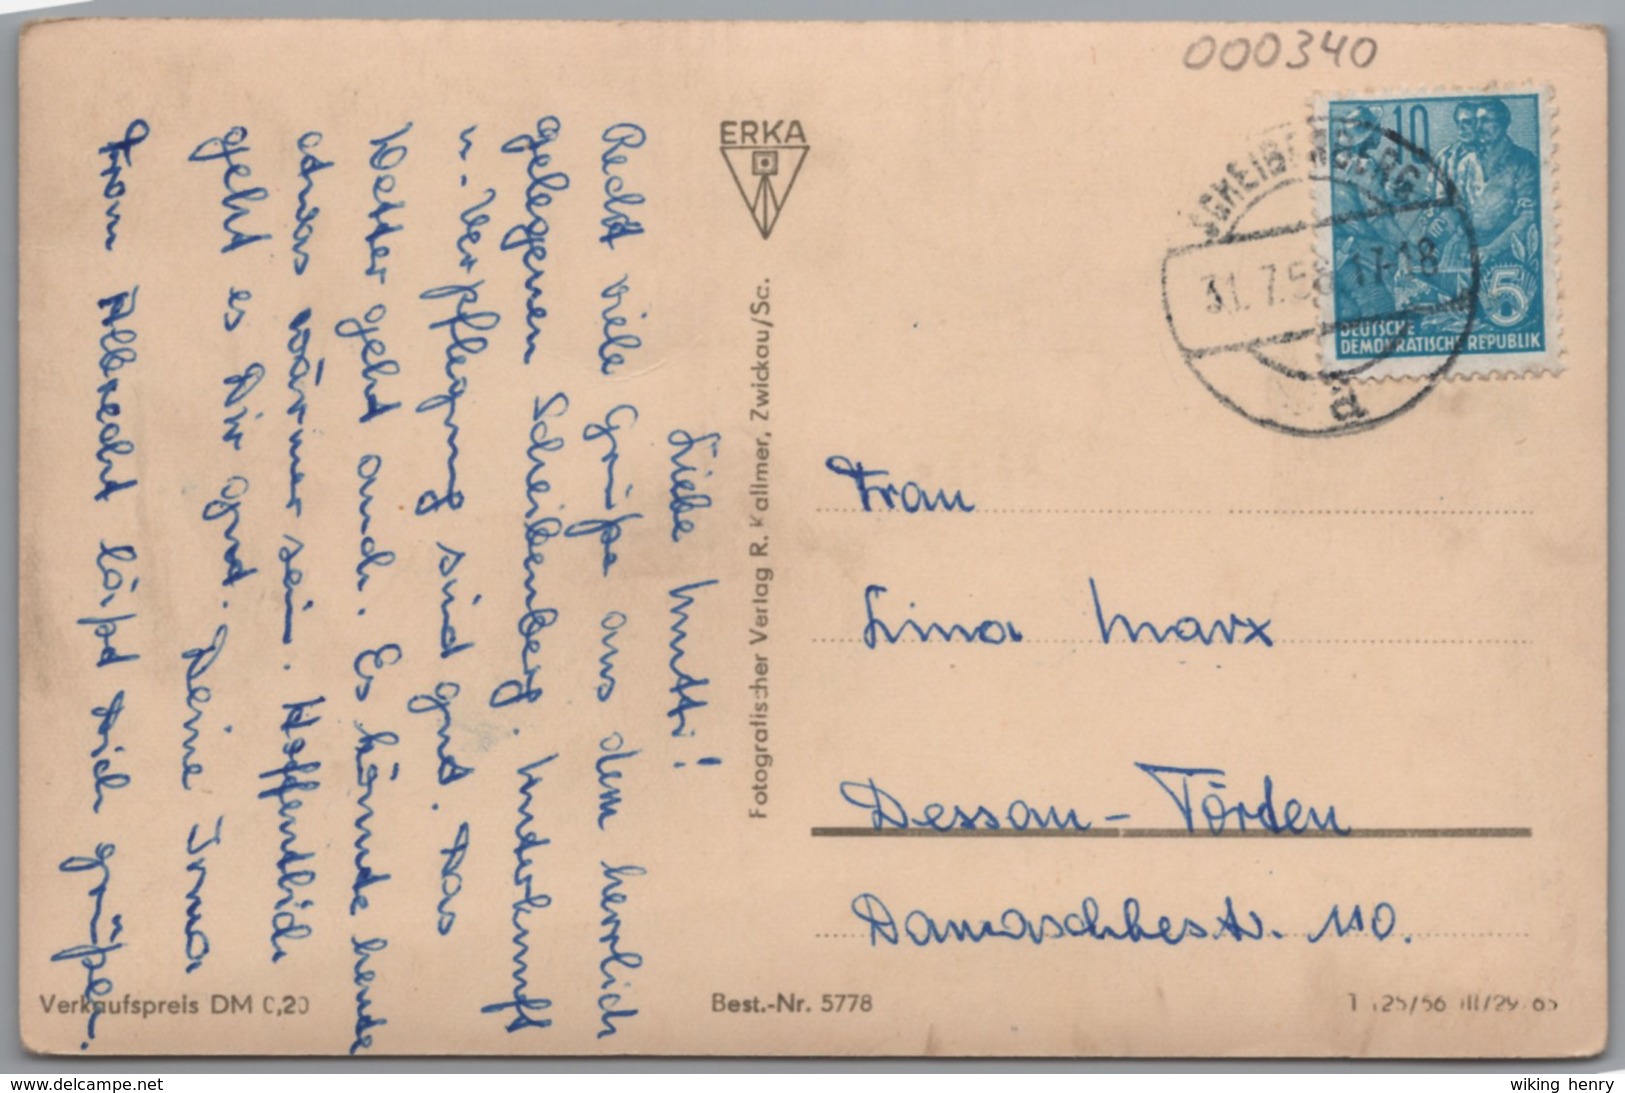 000340
ERKA
SCHEIBENBERG
31.7.58 17-18
a
10
5
DEUTSCHE
DEMOKRATISCHE REPUBLIK
Liebe Mutti!
Recht viele Grüße aus dem herrlich
gelegenen Scheibenberg. Unterkunft
u. Verpflegung sind gut. Das
Wetter geht auch. Es könnte heute
etwas wärmer sein. Hoffentlich
geht es Dir gut. Deine Irma
Frau Albrecht läßt Dich grüßen.
Fotografischer Verlag R. Kallmer, Zwickau/Sa.
Frau
Lina Marx
Dessau-Törten
Damaschkestr. 110.
Verkaufspreis DM 0,20
Best.-Nr. 5778
T 125/56 III/29/65
www.delcampe.net
wiking henry